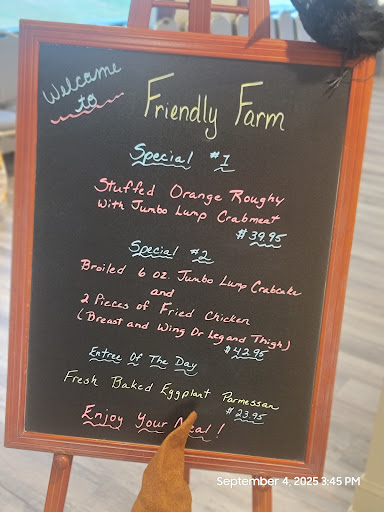 Welcome
to
Friendly Farm
Special #1
Stuffed Orange Roughy
With Jumbo Lump Crabmeat
$39.95
Special #2
Broiled 6 oz. Jumbo Lump Crabcake
and
2 Pieces of Fried Chicken
(Breast and Wing Or Leg and Thigh)
$42.95
Entree Of The Day
Fresh Baked Eggplant Parmesan
$23.95
Enjoy Your Meal!
September 4, 2025 3:45 PM